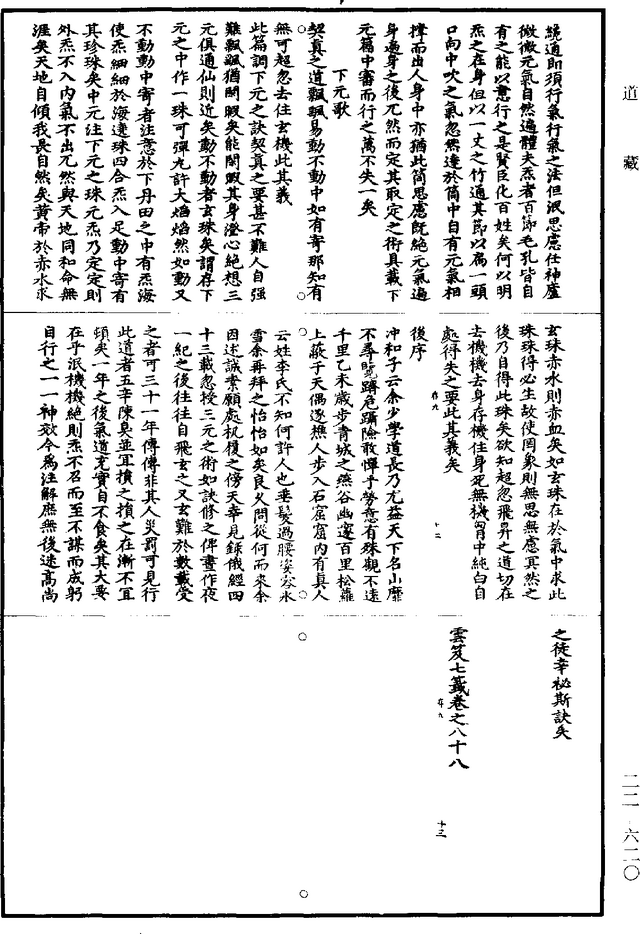 道藏
競通即須行氣行氣之法但泯思慮任神廬
微微元氣自然遍體夫炁者百節毛孔皆自
有之能以意行之是賢臣化百姓矣何以明
炁之在身但以一丈之竹通其節以為一頭
口向中吹之氣忽然達於筒中自有元氣相
擠而出人身中亦猶此筒思慮既絕元氣遍
身遍身之後兀然而定其取定之術具載下
元篇中審而行之萬不失一矣
下元歌
契真之道飄飄易動不動中如有寄那知有
無可超忽去住玄機此其義
此篇調下元之訣契真之要甚不難人自強
難飄飄猶閑暇矣能閑暇其身澄心絕想三
元俱通仙則近矣動不動者玄珠矣謂存下
元之中作一珠可彈丸許大焰焰然如動又
不動動中寄者注意於下丹田之中有炁海
使炁細細於海達珠四合炁入足動中寄有
其珍珠矣中元注下元之珠元炁乃定定則
外炁不入內氣不出兀然與天地同和命無
涯矣天地自傾我長自然矣黃帝於赤水求
玄珠赤水則赤血矣如玄珠在於氣中求此
珠珠得必生故使罔象則無思無慮冥然之
後乃自得此珠矣欲知超忽飛昇之道切在
去機機去身存機住身死無機胷中純白自
處得失之要此其義矣
後序
冲和子云余少學道長乃尤益天下名山靡
不尋覽躋危躡險敢憚乎勞意有殊觀不遠
千里乙未歲步青城之燕谷幽邃百里松蘿
上蔽于天偶逐樵人步入石窟窟內有真人
云姓李氏不知何許人也垂髮過腰姿容氷
雪余再拜之怡怡如矣良久問從何而來余
因述誠素願處杖履之傍天幸見錄俄經四
十三載忽授三元之術如訣修之俾晝作夜
一紀之後往往自飛玄之又玄難於數載受
之者可三十一年傳傳非其人災罰可見行
此道者五辛陳臭並宜損之損之在漸不宜
頓矣一年之後氣道充實自不食矣其大要
在乎泯機機絕則炁不召而至不謀而成躬
自行之一一神效今為注解庶無後迷高尚
之徒幸祕斯訣矣
雲笈七籤卷之八十八
十二
十三
二二 六二〇